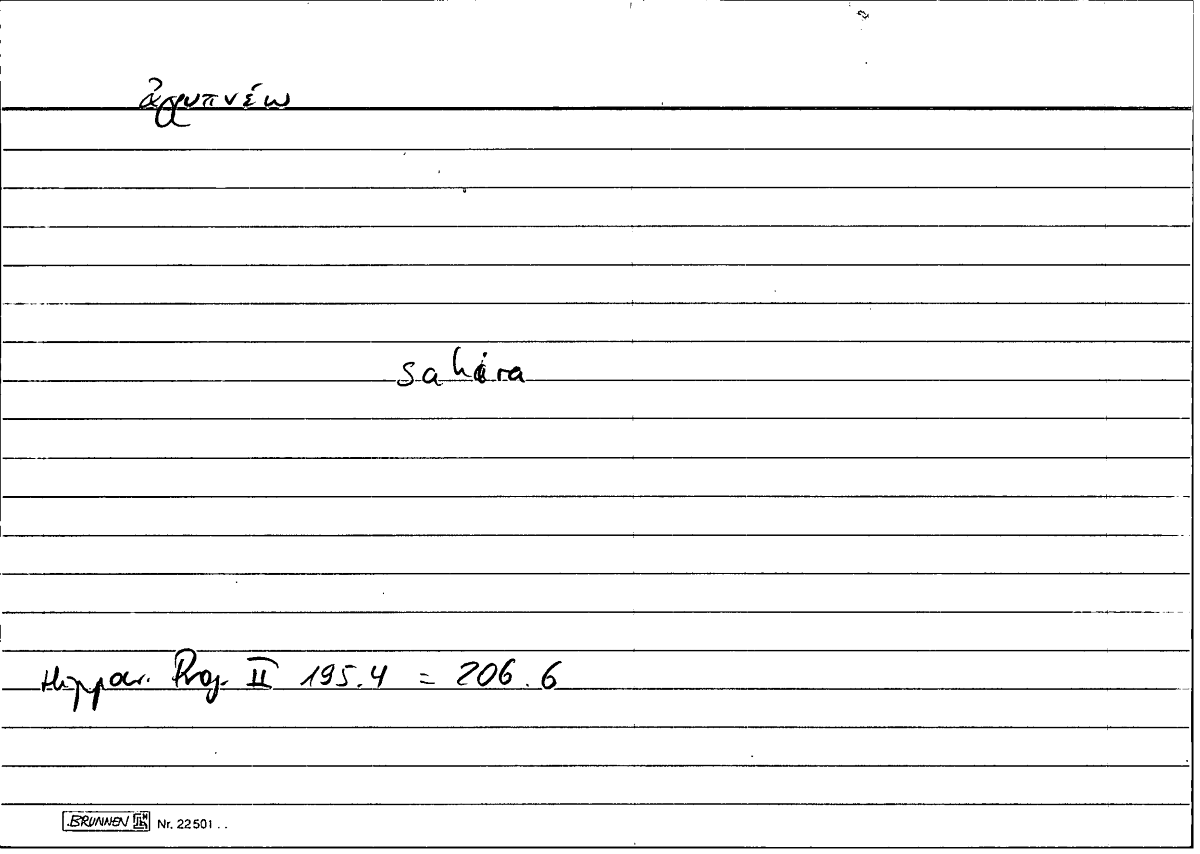 ἀγρυπνέω
sahira
Hippocr. Prog. II 195.4 = 206.6
BRUNNEN Nr. 22501 . .